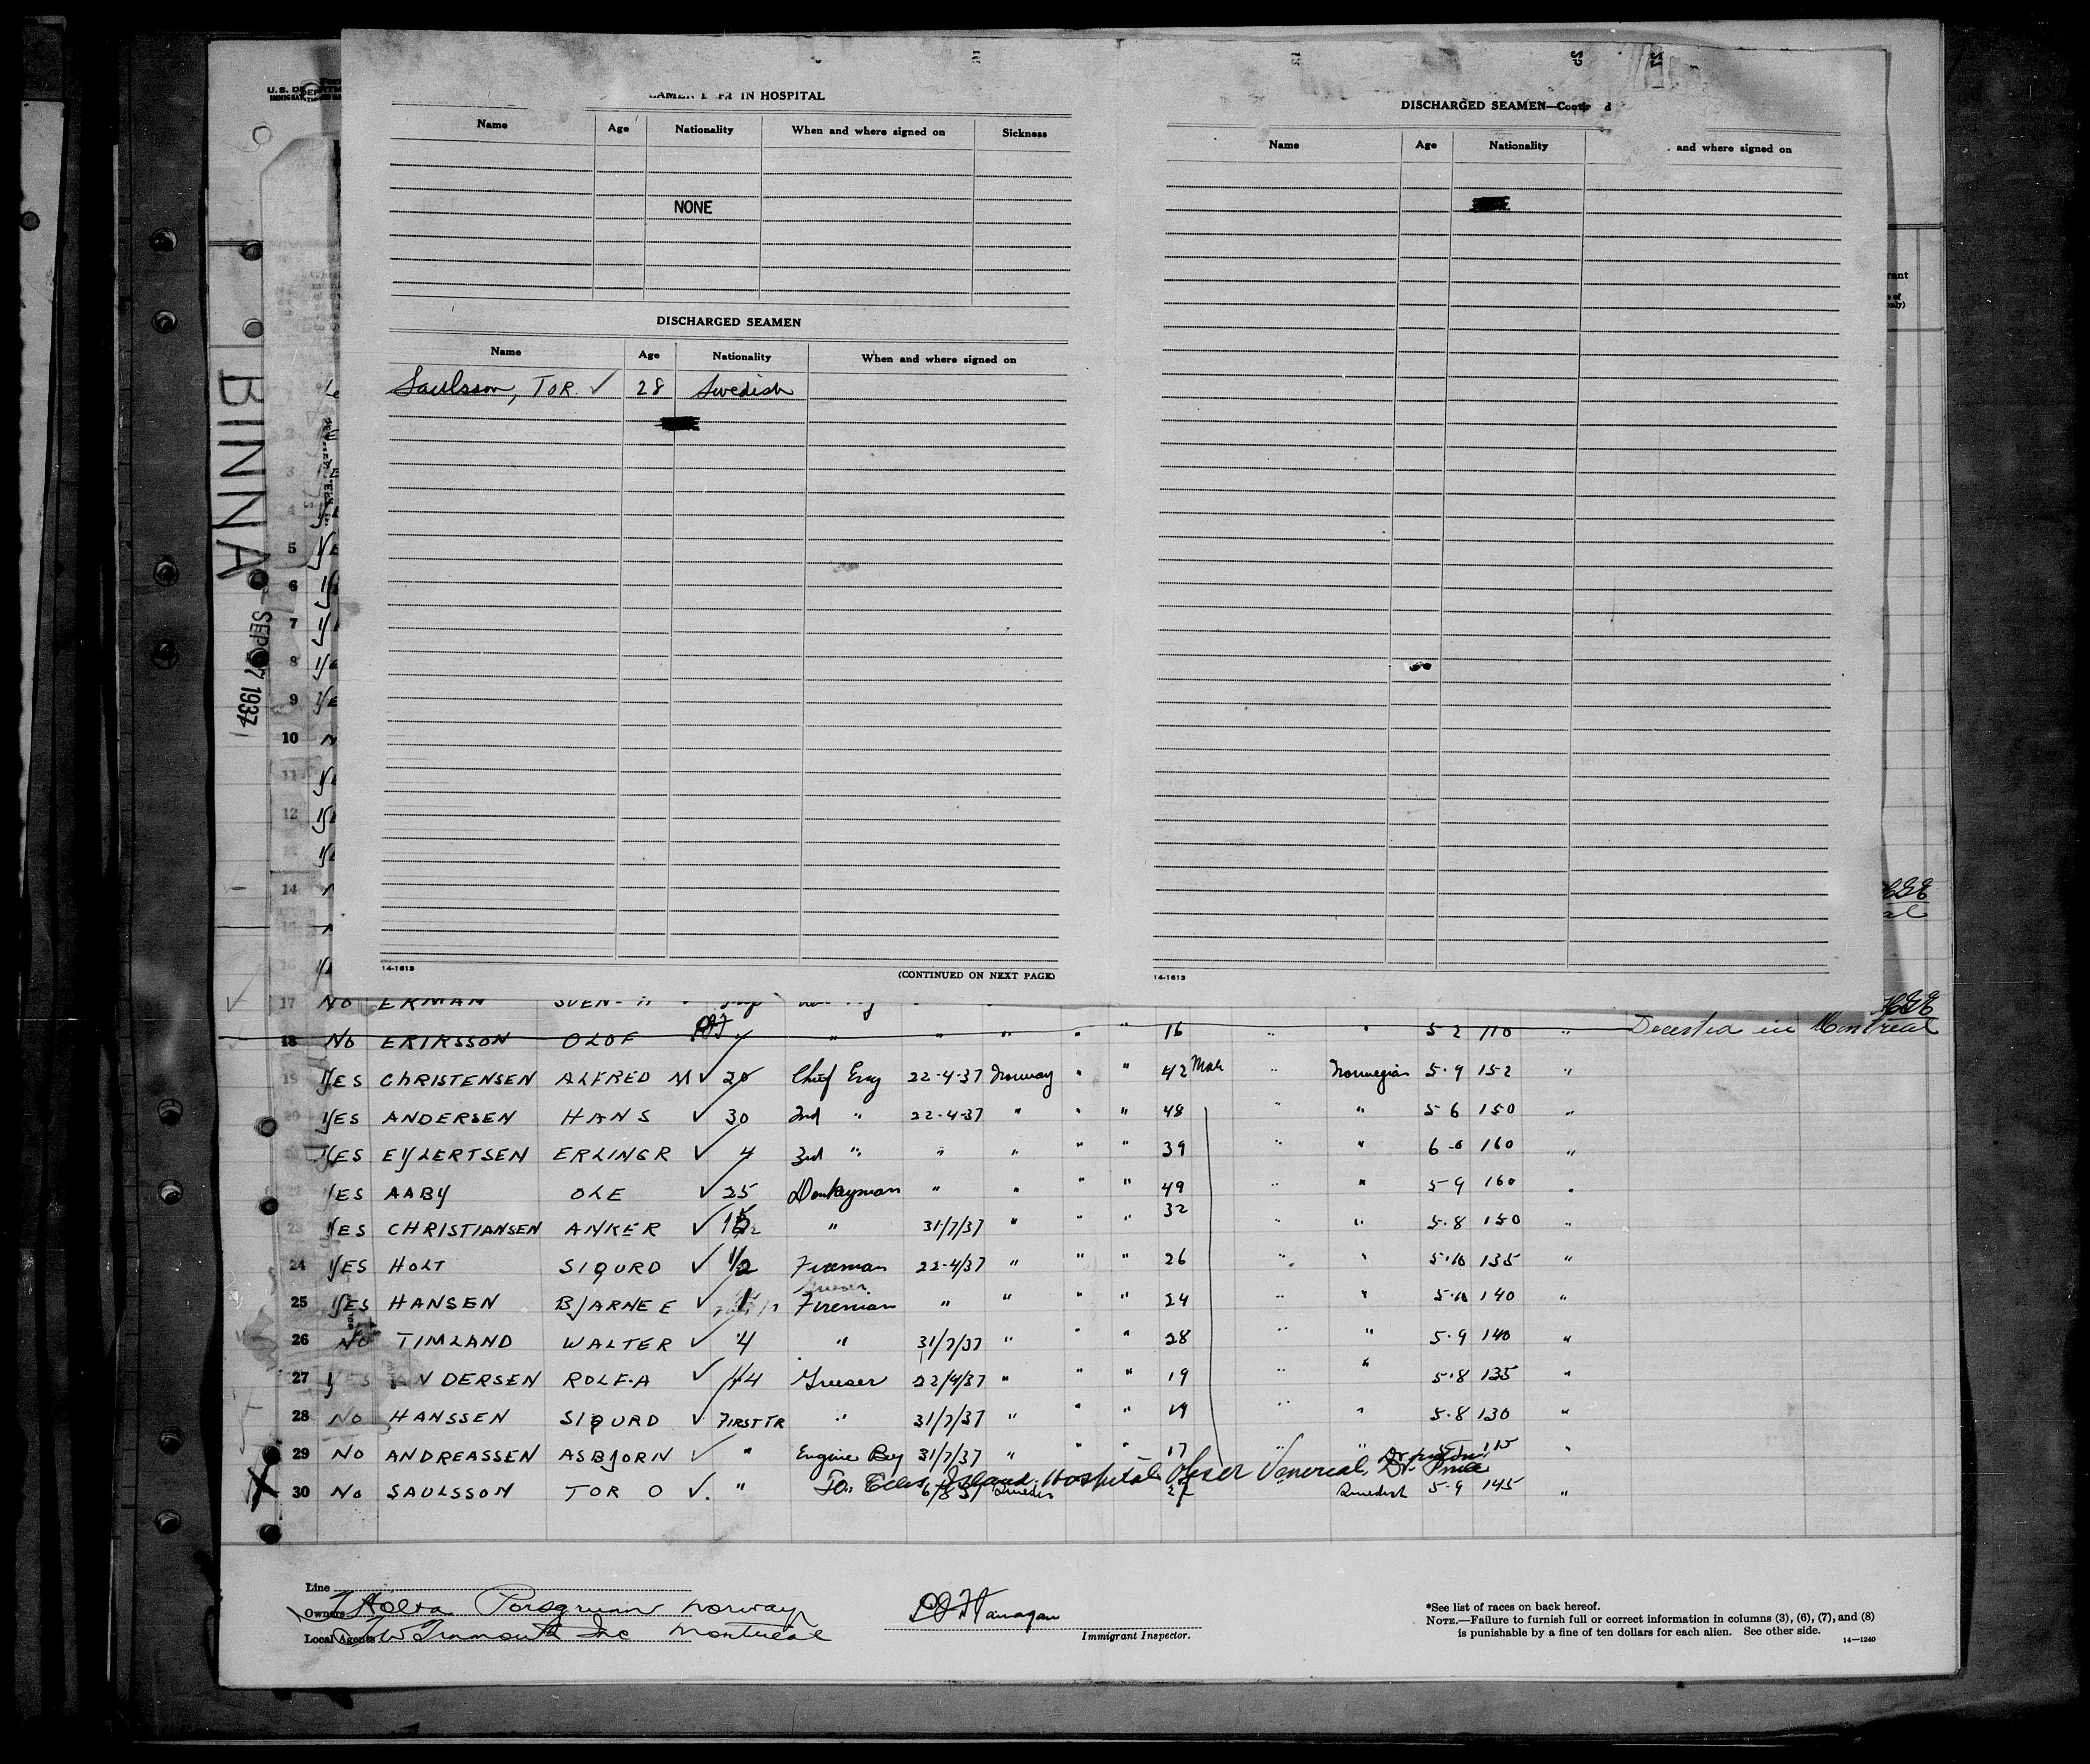 U.S. DE
BINNA
SEP 07 1937
IN HOSPITAL
Name Age Nationality When and where signed on Sickness
NONE
DISCHARGED SEAMEN
Name Age Nationality When and where signed on
Saulsson, TOR. ✓ 28 Swedish
14-1613
(CONTINUED ON NEXT PAGE)
DISCHARGED SEAMEN—Cont d
Name Age Nationality and where signed on
14-1613
5
6
7
8
9
10
11
12
14
17 NO ERMAN SVEN-H
18 NO ERIKSSON OLOF " " " " " " 16 " " 5 2 110 " Deserted in Montreal
19 YES CHRISTENSEN ALFRED M ✓ 20 Chief Eng 22-4-37 Norway " " 42 Male " Norwegian 5-9 152 "
20 YES ANDERSEN HANS ✓ 30 2nd " 22-4-37 " " " 48 " " 5 6 150 "
YES EYLERTSEN ERLING R ✓ 4 3rd " " " " " 39 " " 6-0 160 "
22 YES AABY OLE ✓ 25 Donkeyman " " " " 49 " " 5-9 160 "
23 YES CHRISTIANSEN ANKER ✓ " 31/7/37 " " " 32 " " 5.8 150 "
24 YES HOLT SIGURD ✓ 1/2 Fireman 22-4/37 " " " 26 " " 5.10 135 "
25 YES HANSEN BJARNE E ✓ 1 Fireman " " " " 24 " " 140 "
26 NO TIMLAND WALTER ✓ 4 " 31/7/37 " " " 28 " " 5.9 140 "
27 YES ANDERSEN ROLF.A ✓ 1/4 Greaser 22/4/37 " " " 19 " " 5.8 135 "
28 NO HANSSEN SIGURD ✓ FIRST TR " 31/7/37 " " " 19 " " 5.8 130 "
29 NO ANDREASSEN ASBJORN ✓ " Engine Boy 31/7/37 " " " 17 " " 115 "
To Ellis Island Hospital Ulcer Venereal, Dr.
30 NO SAULSSON TOR O ✓. " 6/8 37 Sweden Swedish 5-9 145 "
Line
Owners Holta Porsgrunn Norway
Local Agents Inc Montreal
Flanagan
Immigrant Inspector.
*See list of races on back hereof.
NOTE.—Failure to furnish full or correct information in columns (3), (6), (7), and (8)
is punishable by a fine of ten dollars for each alien. See other side.
14—1240